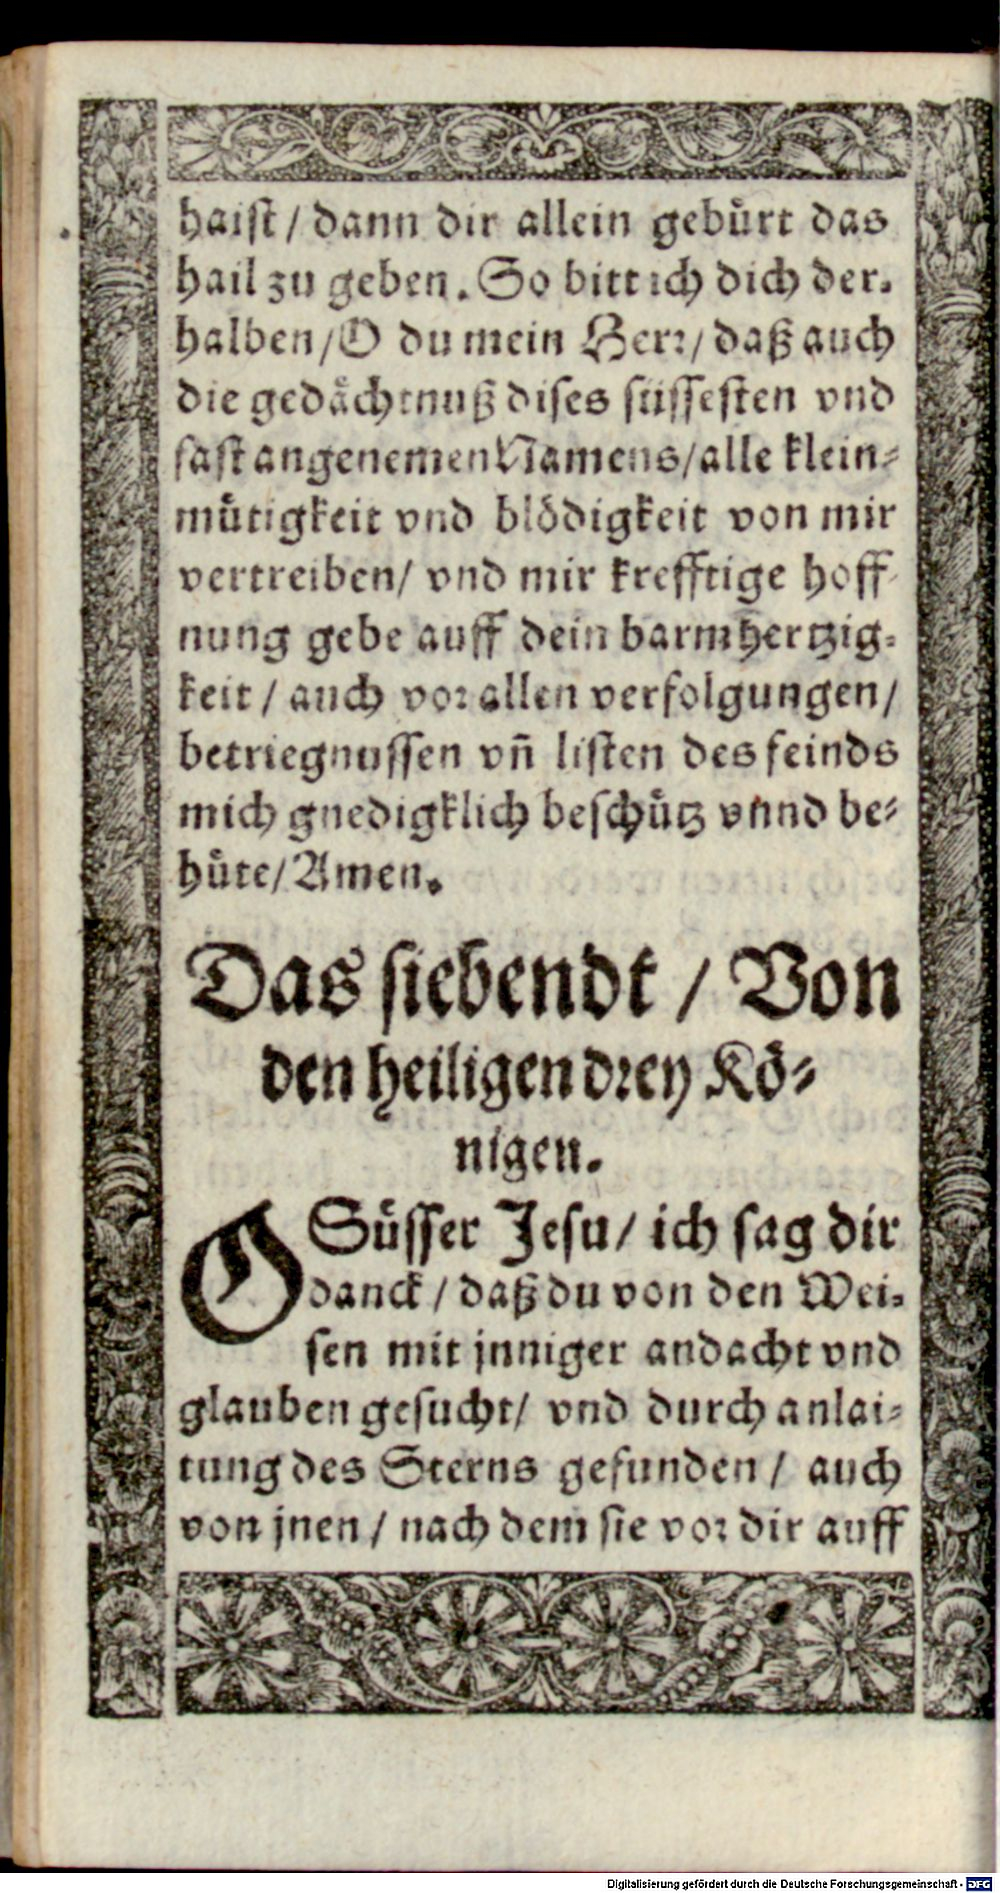 haist / dann dir allein gebürt das
hail zu geben. So bitt ich dich der-
halben / O du mein Herr / daß auch
die gedächtnuß dises süssesten vnd
fast angenemen Namens / alle klein-
mütigkeit vnd blödigkeit von mir
vertreiben / vnd mir krefftige hoff-
nung gebe auff dein barmhertzig-
keit / auch vor allen verfolgungen /
betriegnussen vñ listen des feinds
mich gnedigklich beschütz vnnd be-
hüte / Amen.
Das siebendt / Von
den heiligen drey Kö-
nigen.
O Süsser Jesu / ich sag dir
danck / daß du von den Wei-
sen mit jnniger andacht vnd
glauben gesucht / vnd durch anlai-
tung des Sterns gefunden / auch
von jnen / nach dem sie vor dir auff
Digitalisierung gefördert durch die Deutsche Forschungsgemeinschaft - DFG